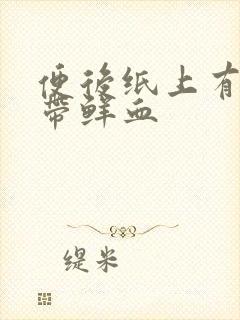 便後纸上有
带鲜血
缇米